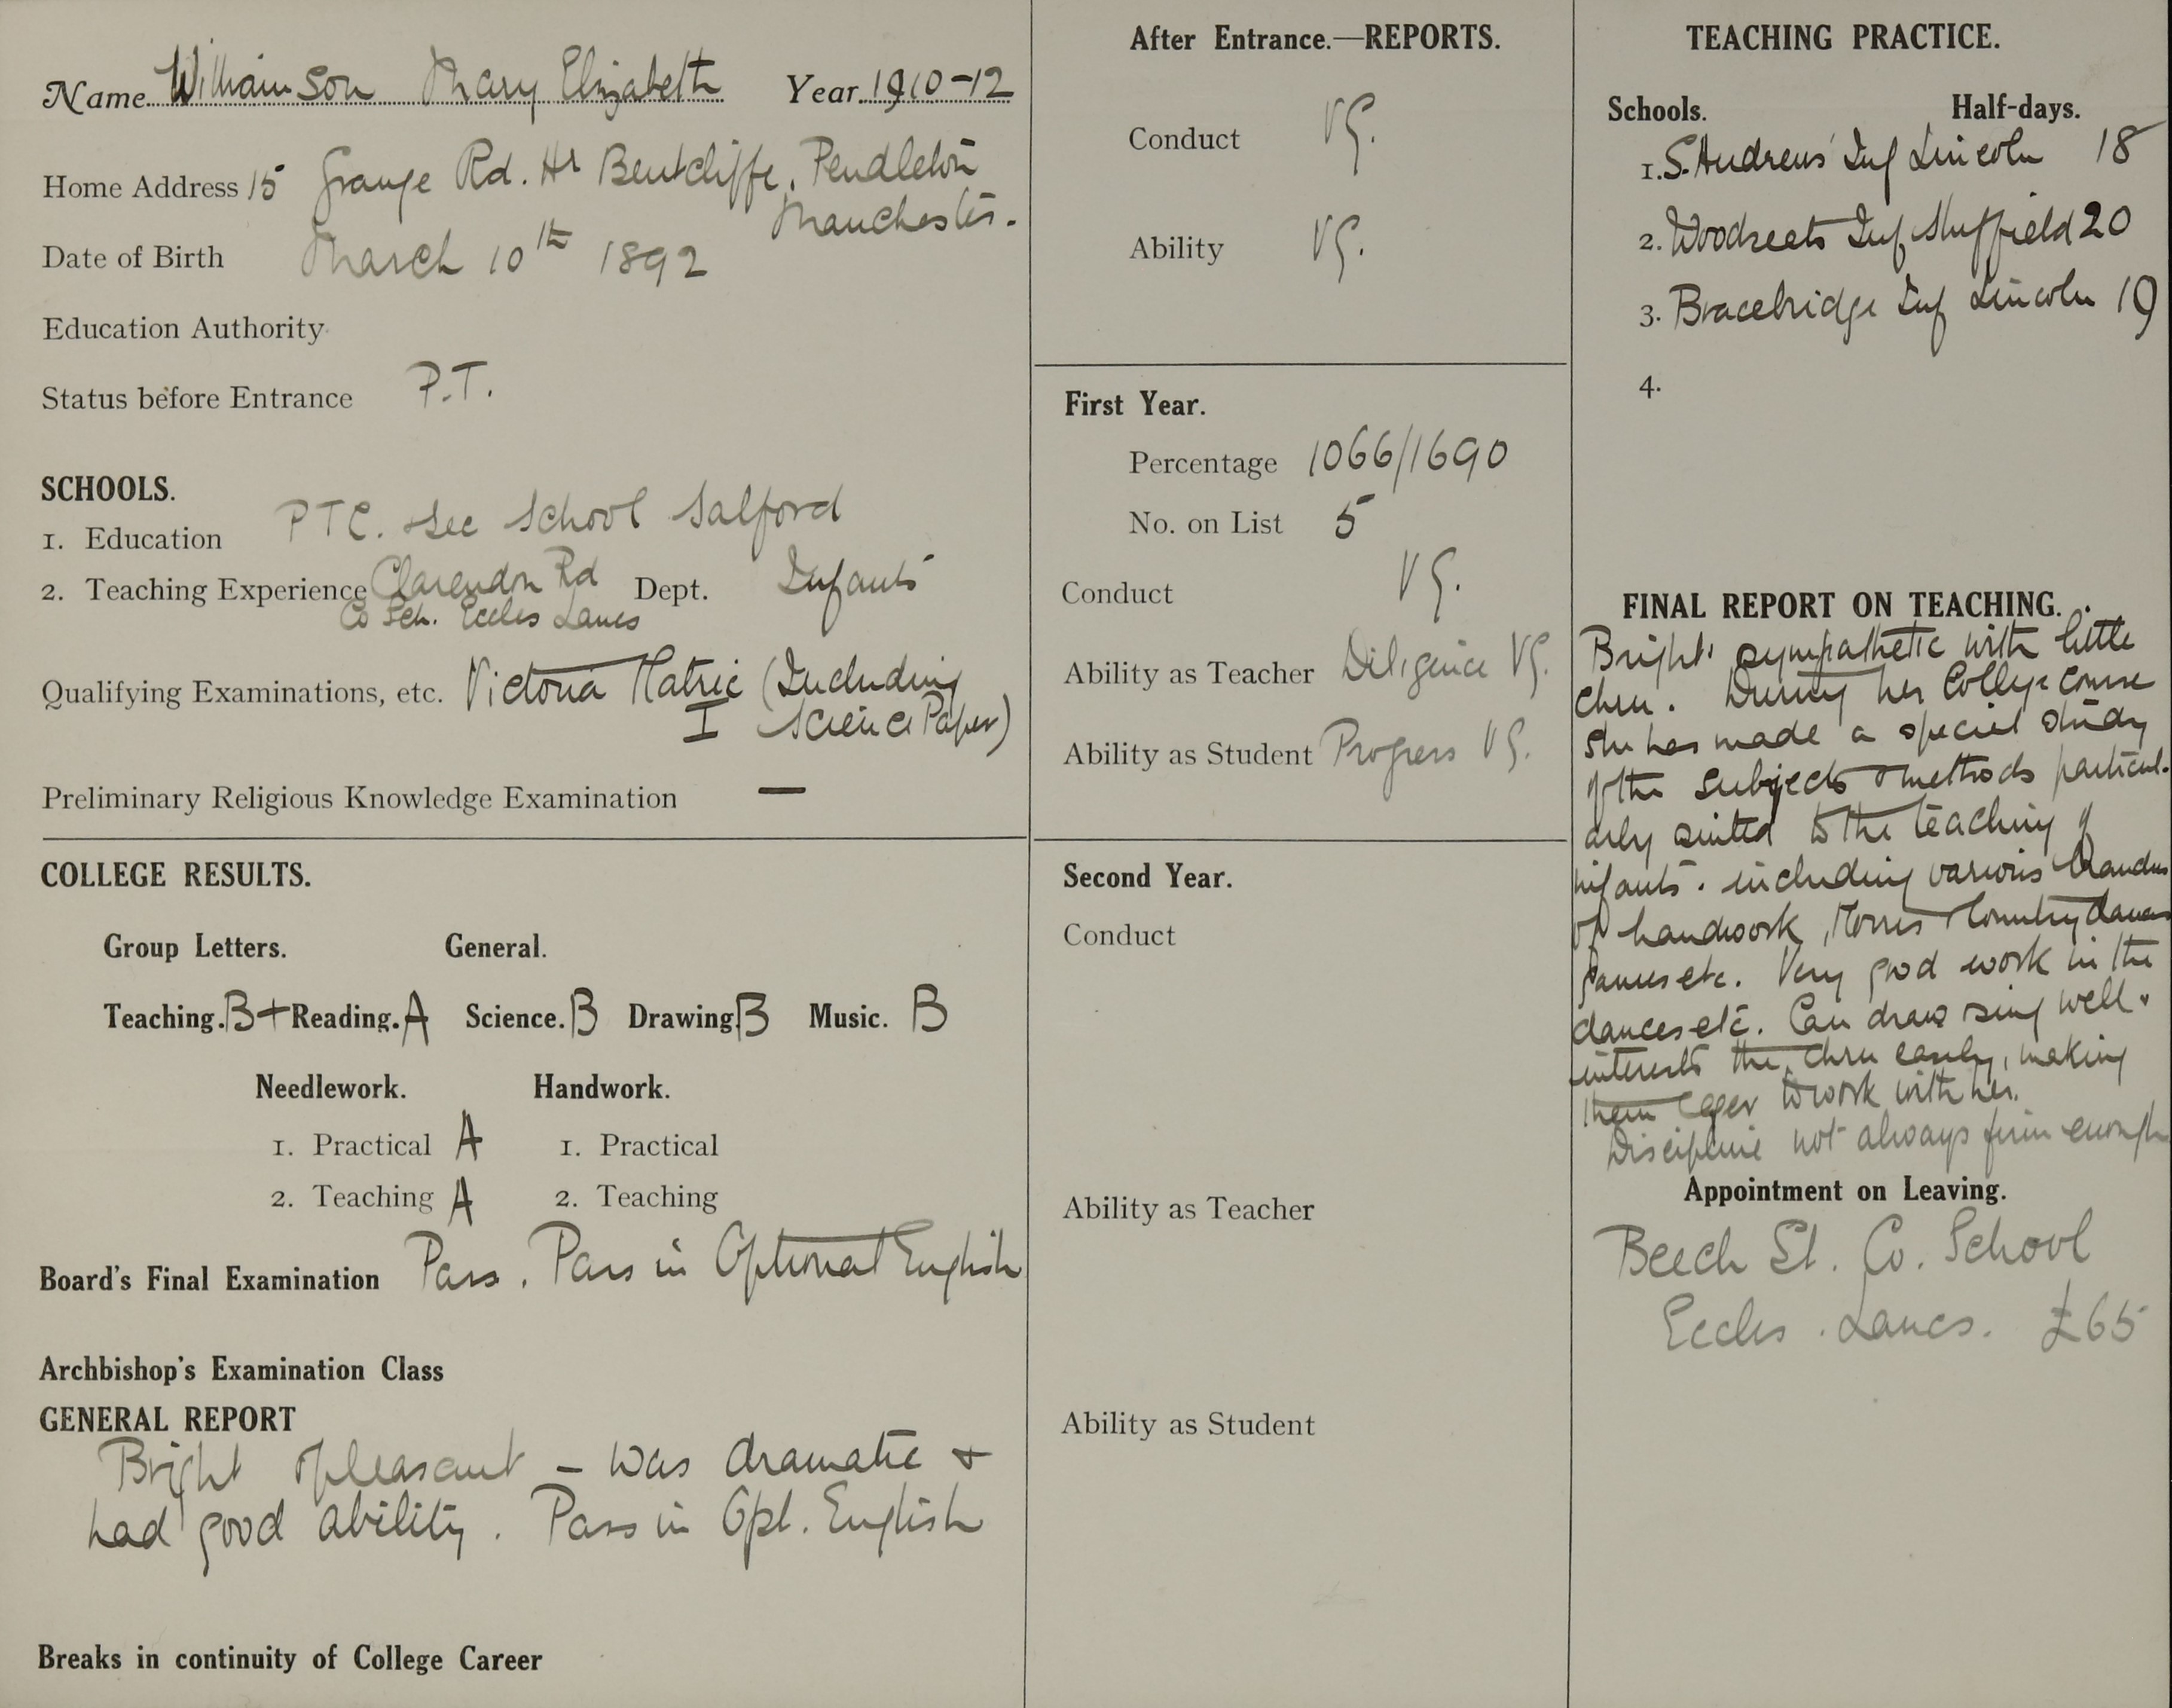 Name Williamson Mary Elizabeth Year 1910-12
Home Address 15 Grange Rd. Hr Bentcliffe, Pendleton
Manchester.
Date of Birth March 10th 1892
Education Authority
Status before Entrance P.T.
SCHOOLS.
1. Education PTC. Sec School Salford
2. Teaching Experience Clarendon Rd Dept. Infants
Co Sch. Eccles Lancs
Qualifying Examinations, etc. Victoria Matric (Including
I Science Paper)
Preliminary Religious Knowledge Examination —
COLLEGE RESULTS.
Group Letters. General.
Teaching. B+ Reading. A Science. B Drawing. B Music. B
Needlework. Handwork.
1. Practical A 1. Practical
2. Teaching A 2. Teaching
Board's Final Examination Pass. Pass in Optional English
Archbishop's Examination Class
GENERAL REPORT
Bright & pleasant – was dramatic &
had good ability. Pass in Opl. English
Breaks in continuity of College Career
After Entrance.—REPORTS.
Conduct VG.
Ability VG.
First Year.
Percentage 1066/1690
No. on List 5
Conduct VG.
Ability as Teacher Diligence VG.
Ability as Student Progress VG.
Second Year.
Conduct
Ability as Teacher
Ability as Student
TEACHING PRACTICE.
Schools. Half-days.
1. S. Andrews' Inf Lincoln 18
2. Woodseats Inf Sheffield 20
3. Bracebridge Inf Lincoln 19
4.
FINAL REPORT ON TEACHING.
Bright, sympathetic with little
chn. During her College course
she has made a special study
of the subjects & methods particul-
arly suited to the teaching of
infants. including various branches
of handwork, Morris & Country dances
games etc. Very good work in the
dances etc. Can draw & sing well.
interests the chn easily, making
them eager to work with her.
Discipline not always firm enough
Appointment on Leaving.
Beech St. Co. School
Eccles. Lancs. £65